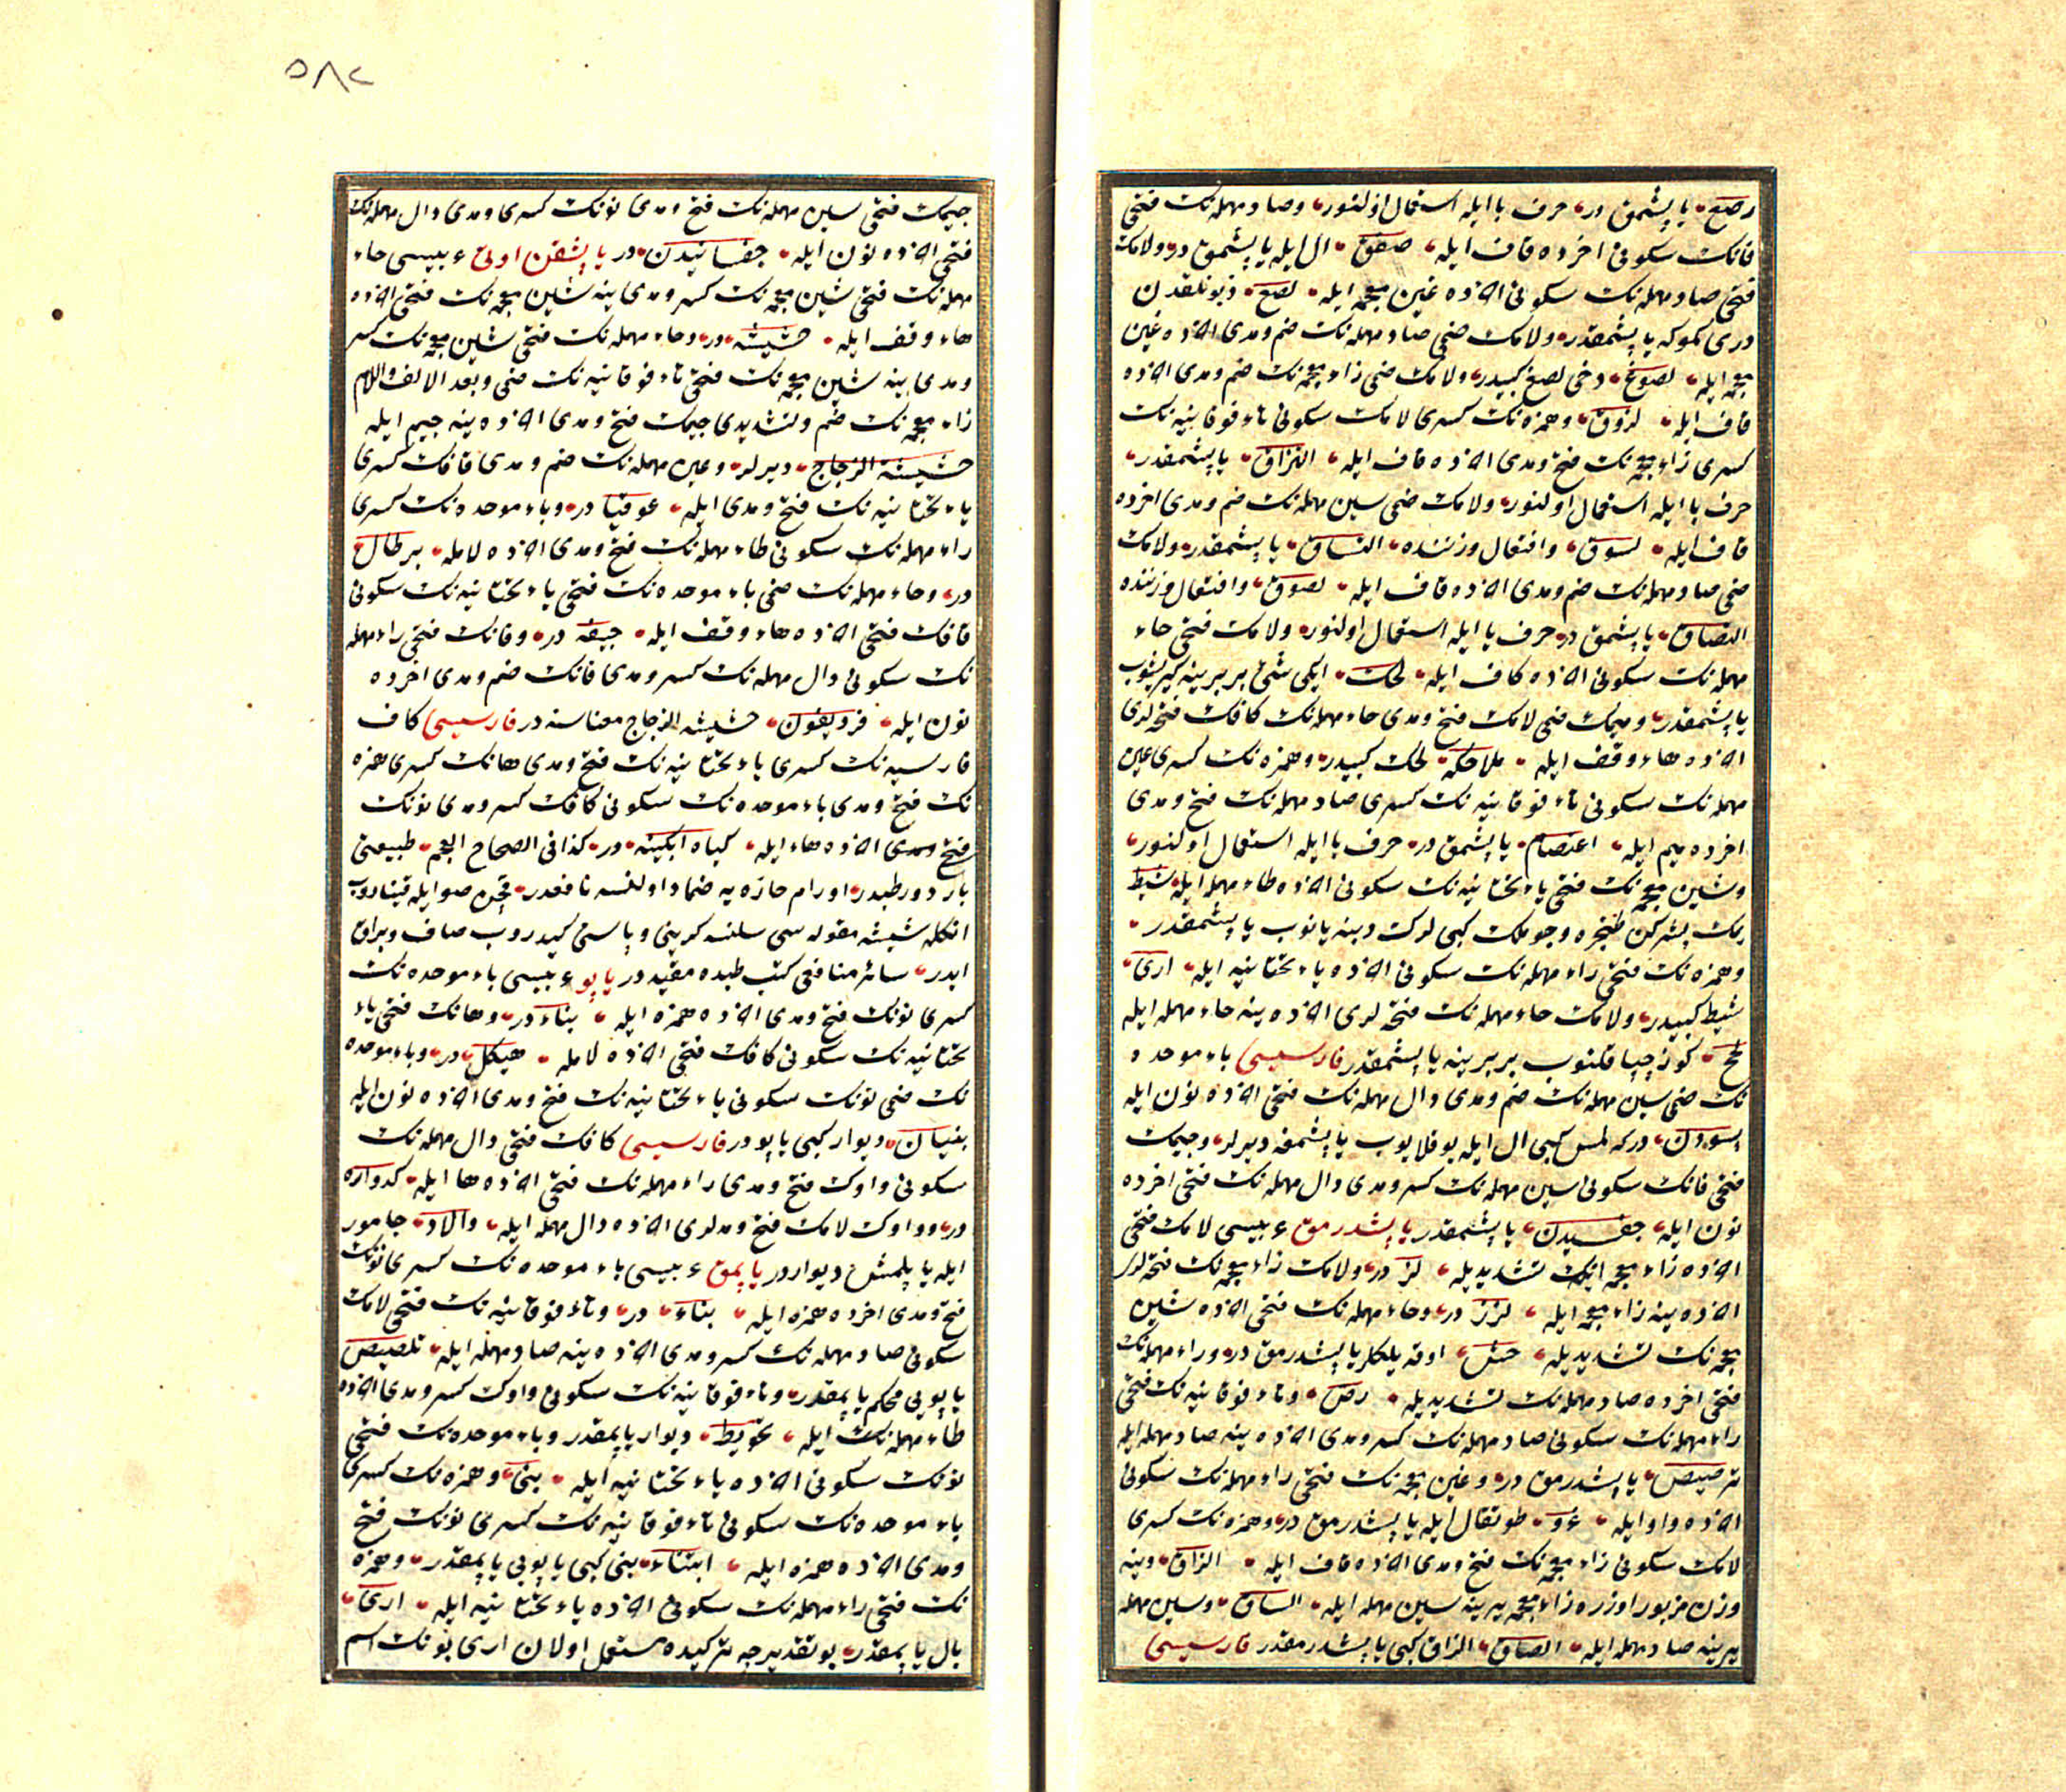 رصغ یاپشمق در حرف با ایله استعمال اولنور وصاد مهمله‌نک فتحی
فانک سکونی اخرده قاف ایله صفق ال ایله یاپشمق در ولامک
فتحی صاد مهمله‌نک سکونی اخرده غین معجمه ایله لصغ
دری کموکه یاپشمقدر ولامک ضمی صاد مهمله‌نک ضم ومدی اخرده غین
معجمه ایله لصوغ دخی لصغ کبیدر ولامک ضمی زاء معجمه‌نک ضم ومدی اخرده
قاف ایله لزوق وهمزه‌نک کسری لامک سکونی تاء فوقانیه‌نک
کسری زاء معجمه‌نک فتح ومدی اخرده قاف ایله التزاق یاپشمقدر
حرف با ایله استعمال اولنور ولامک ضمی سین مهمله‌نک ضم ومدی اخرده
قاف ایله لسوق وافتعال وزننده التساق یاپشمقدر ولامک
ضمی صاد مهمله‌نک ضم ومدی اخرده قاف ایله لصوق وافتعال وزننده
التصاق یاپشمق در حرف با ایله استعمال اولنور ولامک فتحی حاء
مهمله‌نک سکونی اخرده کاف ایله لحک ایکی شئ بر برینه کیریشوب
یاپشمقدر ومیمک ضمی لامک فتح ومدی حاء مهمله‌نک کافک فتحه‌لری
اخرده هاء وقف ایله ملاحکه لحک کبیدر وهمزه‌نک کسری عین
مهمله‌نک سکونی تاء فوقانیه‌نک کسری صاد مهمله‌نک فتح ومدی
اخرده میم ایله اعتصام یاپشمق در حرف با ایله استعمال اولنور
وشین معجمه‌نک فتحی یاء تحتانیه‌نک سکونی اخرده طاء مهمله ایله شیط
یمک پشرکن طنجره وچوملک کبی لرک دبنه یانوب یاپشمقدر
وهمزه‌نک فتحی راء مهمله‌نک سکونی اخرده یاء تحتانیه ایله اری
شیط کبیدر ولامک حاء مهمله‌نک فتحه‌لری اخرده ینه حاء مهمله ایله
لحح کوز بر برینه یاپشمقدر فارسیسی باء موحده
نک ضمی سین مهمله‌نک ضم ومدی دال مهمله‌نک فتحی اخرده نون ایله
بسودن درکه لمس کبی ال ایله یوقلایوب یاپشمغه دیرلر وجیمک
فتحی فانک سکونی سین مهمله‌نک کسر ومدی دال مهمله‌نک فتحی اخرده
نون ایله جفسیدن یاپشمقدر یاپشدرمق عربیسی لامک فتحی
اخرده زاء معجمه‌نک تشدیدیله لز در ولامک زاء معجمه‌نک فتحه‌لری
اخرده ینه زاء معجمه ایله لزز در وحاء مهمله‌نک فتحی اخرده شین
معجمه‌نک تشدیدیله حش اوقه یلکلر یاپشدرمق در وراء مهمله‌نک
فتحی اخرده صاد مهمله‌نک تشدیدیله رص وتاء فوقانیه‌نک فتحی
راء مهمله‌نک سکونی صاد مهمله‌نک کسر ومدی اخرده ینه صاد مهمله ایله
ترصیص یاپشدرمق در وغین معجمه‌نک فتحی راء مهمله‌نک سکونی
اخرده واو ایله غرو طوتقال ایله یاپشدرمق در وهمزه‌نک کسری
لامک سکونی زاء معجمه‌نک فتح ومدی اخرده قاف ایله الزاق وینه
وزن مزبور اوزره زاء معجمه یرینه سین مهمله ایله الساق وسین مهمله
یرینه صاد مهمله ایله الصاق الزاق کبی یاپشدرمقدر فارسیسی
۵۸۲
جیمک فتحی سین مهمله‌نک فتح ومدی نونک کسری ومدی دال مهمله‌نک
فتحی اخرده نون ایله جفسانیدن در یاپشقن اوتی عربیسی حاء
مهمله‌نک فتحی شین معجمه‌نک کسر ومدی ینه شین معجمه‌نک فتحی اخرده
هاء وقف ایله حشیشه در وحاء مهمله‌نک فتحی شین معجمه‌نک کسر
ومدی ینه شین معجمه‌نک فتحی تاء فوقانیه‌نک ضمی وبعد الالف واللام
زاء معجمه‌نک ضم وتشدیدی جیمک فتح ومدی اخرده ینه جیم ایله
حشیشة الزجاج دیرلر وعین مهمله‌نک ضم ومدی قافک کسری
یاء تحتانیه‌نک فتح ومدی ایله عوقیا در وباء موحده‌نک کسری
راء مهمله‌نک سکونی طاء مهمله‌نک فتح ومدی اخرده لامله برطال
در وحاء مهمله‌نک ضمی باء موحده‌نک فتحی یاء تحتانیه‌نک سکونی
قافک فتحی اخرده هاء وقف ایله حبیقه در وفانک فتحی راء مهمله
نک سکونی دال مهمله‌نک کسر ومدی فانک ضم ومدی اخرده
نون ایله فردیفون حشیشة الزجاج معناسنه در فارسیسی کاف
فارسیه‌نک کسری یاء تحتانیه‌نک فتح ومدی هانک کسری همزه
نک فتح ومدی باء موحده‌نک سکونی کافک کسر ومدی نونک
فتح ومدی اخرده هاء ایله کیاه ابکینه در کذا فی الصحاح العجم طبیعتی
بارد ورطبدر اورام حاره‌یه ضماد اولنسه نافعدر صو ایله قینادوب
انکله شیشه مقوله سی سلنسه کرینی وپاسنی کیدروب صاف وبراق
ایدر سائر منافعی کتب طبده مقیددر یاپو عربیسی باء موحده‌نک
کسری نونک فتح ومدی اخرده همزه ایله بناء در وهانک فتحی یاء
تحتانیه‌نک سکونی کافک فتحی اخرده لامله هیکل در وباء موحده
نک ضمی نونک سکونی یاء تحتانیه‌نک فتح ومدی اخرده نون ایله
بنیان دیوار کبی یاپو در فارسیسی کافک فتحی دال مهمله‌نک
سکونی واوک فتح ومدی راء مهمله‌نک فتحی اخرده ها ایله کدواره
در وواوک لامک فتح ومدلری اخرده دال مهمله ایله والاد جامور
ایله یاپلمش دیواردر یاپمق عربیسی باء موحده‌نک کسری نونک
فتح ومدی اخرده همزه ایله بناء در وتاء فوقانیه‌نک فتحی لامک
سکونی صاد مهمله‌نک کسر ومدی اخرده ینه صاد مهمله ایله تلصیص
یاپویی محکم یاپمقدر وتاء فوقانیه‌نک سکونی واوک کسر ومدی اخرده
طاء مهمله‌نک ایله تحویط دیوار یاپمقدر وباء موحده‌نک فتحی
نونک سکونی اخرده یاء تحتانیه ایله بنی وهمزه‌نک کسری
باء موحده‌نک سکونی تاء فوقانیه‌نک کسری نونک فتح
ومدی اخرده همزه ایله ابتناء بنی کبی یاپویی یاپمقدر وهمزه
نک فتحی راء مهمله‌نک سکونی اخرده یاء تحتانیه ایله اری
بال یاپمقدر بو تقدیرجه ترکیده مستعمل اولان اری بونک اسم